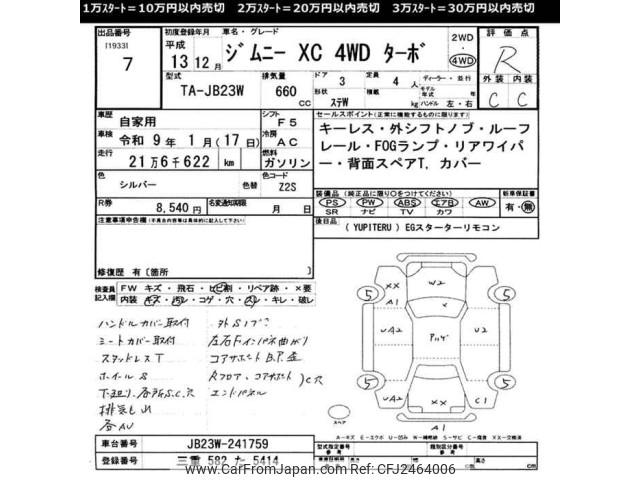 1万スタート=10万円以内売切　2万スタート=20万円以内売切　3万スタート=30万円以内売切
出品番号
[1933]
7
初度登録年月
平成
13 12月
車名・グレード
ジムニー XC 4WD ターボ
2WD
・
4WD
評価点
R
外装 内装
C C
型式
TA-JB23W
排気量
660 cc
ドア
3
定員
4 人
ディーラー・並行
モデル年式 年
形状
ステW
積載 kg
ハンドル 左・右
車歴
自家用
シフト
F5
セールスポイント(正常に機能するものに限ります)
キーレス・外シフトノブ・ルーフ
レール・FOGランプ・リアワイパ
ー・背面スペアT, カバー
車検
令和 9 年 1 月 (17 日)
冷房
AC
走行
21万6千622 km
燃料
ガソリン
色
シルバー
色替
色コード
Z2S
R券
8,540 円
名変通知期限
月 日
装備品(純正品に限り○をつけてください)
PS PW ABS エアB AW
SR ナビ TV カワ
新車保証書
有・無
注意事項申告欄
後日品
(YUPITERU) EGスターターリモコン
修復歴 有 [箇所
検査員記入欄
FW キズ・飛石・ヒビ割・リペア跡・×要
内装 キズ・汚レ・コゲ・穴・スレ・キレ・破レ
ハンドルカバー取付
シートカバー取付
スタッドレスT
ホイールS
下廻り、各所S.C.穴
排気もれ
各AU
外Sノブ
左右Fインパネ曲がり
コアサポートB.P.歪
Rフロア、コアサポート)C穴
エンドパネル
5
5
5
5
XX
A1
W2
UA2
UA2
U2
C1
XX
A1
スペア
A-キズ E-エクボ U-凹み W-補修跡 S-サビ C-腐食 XX-交換済
車台番号
JB23W-241759
登録番号
三重 582 た 5414
型式指定番号
類別区分番号
参考
長さ cm
幅 cm
高さ cm
www.CarFromJapan.com ID:CFJ2464006